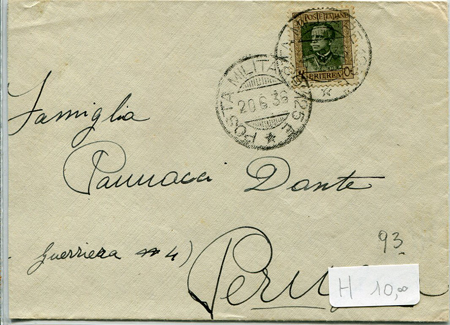 POSTE ITALIANE
ERITREA
POSTA MILITARE
20.6.36
Famiglia
Pannacci Dante
Guerriera n 4)
93
H 10,00